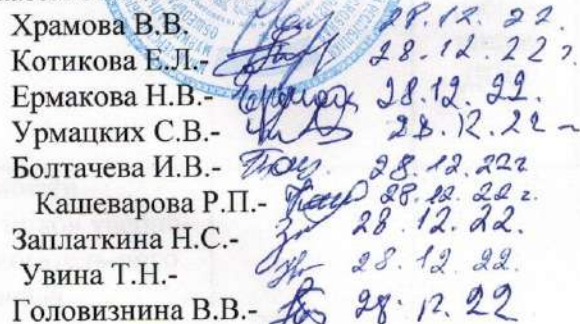 Храмова В.В. 28.12.22.
Котикова Е.Л.- 28.12.22 г.
Ермакова Н.В.- 28.12.22.
Урмацких С.В.- 28.12.22
Болтачева И.В.- 28.12.22г
Кашеварова Р.П.- 28.12.22 г.
Заплаткина Н.С.- 28.12.22.
Увина Т.Н.- 28.12.22.
Головизнина В.В.- 28.12.22